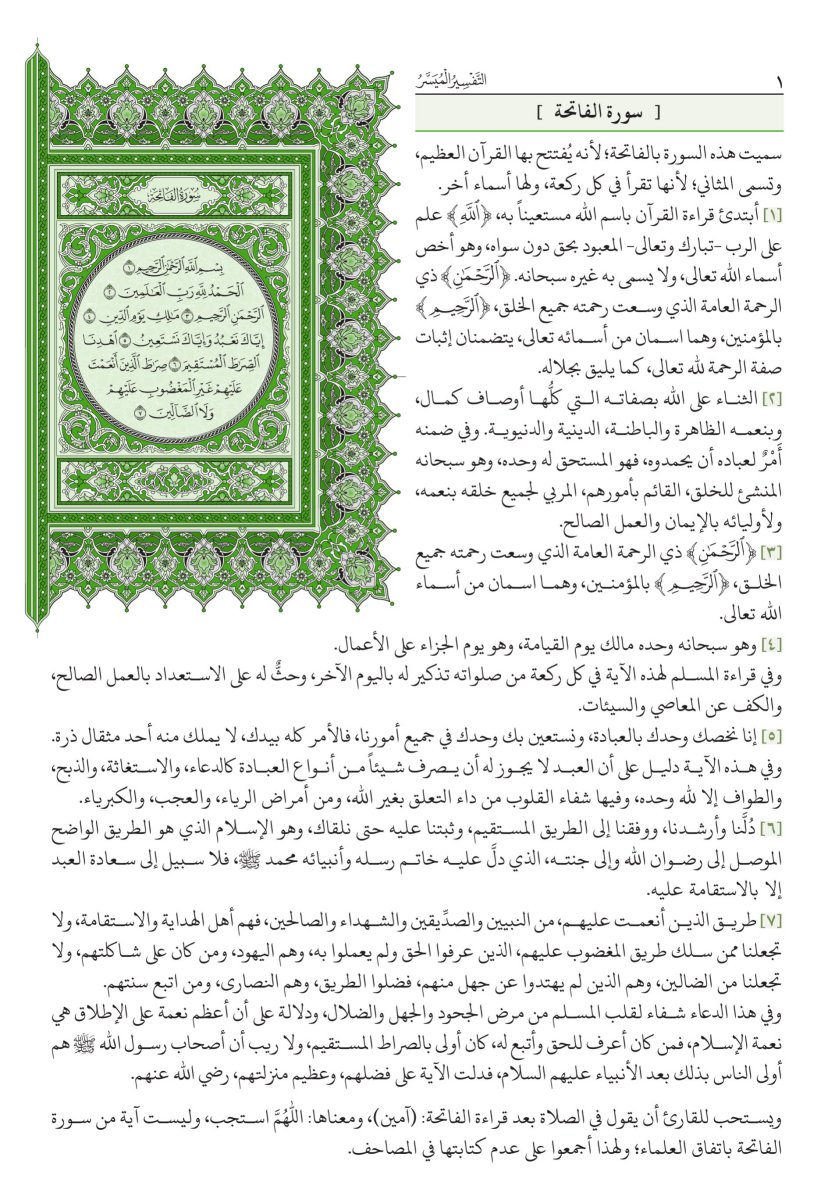 ١
التَّفْسِيرُ الْمُيَسَّرُ
[ سورة الفاتحة ]
سُورَةُ الفَاتِحَةِ
بِسْمِ ٱللَّهِ ٱلرَّحْمَٰنِ ٱلرَّحِيمِ ١
ٱلْحَمْدُ لِلَّهِ رَبِّ ٱلْعَٰلَمِينَ ٢
ٱلرَّحْمَٰنِ ٱلرَّحِيمِ ٣ مَٰلِكِ يَوْمِ ٱلدِّينِ ٤
إِيَّاكَ نَعْبُدُ وَإِيَّاكَ نَسْتَعِينُ ٥ ٱهْدِنَا
ٱلصِّرَٰطَ ٱلْمُسْتَقِيمَ ٦ صِرَٰطَ ٱلَّذِينَ أَنْعَمْتَ
عَلَيْهِمْ غَيْرِ ٱلْمَغْضُوبِ عَلَيْهِمْ
وَلَا ٱلضَّآلِّينَ ٧
سميت هذه السورة بالفاتحة؛ لأنه يُفتتح بها القرآن العظيم،
وتسمى المثاني؛ لأنها تقرأ في كل ركعة، ولها أسماء أخر.
[١] أبتدئ قراءة القرآن باسم الله مستعيناً به، ﴿ٱللَّهِ﴾ علم
على الرب -تبارك وتعالى- المعبود بحق دون سواه، وهو أخص
أسماء الله تعالى، ولا يسمى به غيره سبحانه. ﴿ٱلرَّحْمَٰنِ﴾ ذي
الرحمة العامة الذي وسعت رحمته جميع الخلق، ﴿ٱلرَّحِيمِ﴾
بالمؤمنين، وهما اسمان من أسمائه تعالى، يتضمنان إثبات
صفة الرحمة لله تعالى، كما يليق بجلاله.
[٢] الثناء على الله بصفاته التي كلُّها أوصاف كمال،
وبنعمه الظاهرة والباطنة، الدينية والدنيوية. وفي ضمنه
أَمْرٌ لعباده أن يحمدوه، فهو المستحق له وحده، وهو سبحانه
المنشئ للخلق، القائم بأمورهم، المربي لجميع خلقه بنعمه،
ولأوليائه بالإيمان والعمل الصالح.
[٣] ﴿ٱلرَّحْمَٰنِ﴾ ذي الرحمة العامة الذي وسعت رحمته جميع
الخلق، ﴿ٱلرَّحِيمِ﴾ بالمؤمنين، وهما اسمان من أسماء
الله تعالى.
[٤] وهو سبحانه وحده مالك يوم القيامة، وهو يوم الجزاء على الأعمال.
وفي قراءة المسلم لهذه الآية في كل ركعة من صلواته تذكير له باليوم الآخر، وحثٌّ له على الاستعداد بالعمل الصالح،
والكف عن المعاصي والسيئات.
[٥] إنا نخصك وحدك بالعبادة، ونستعين بك وحدك في جميع أمورنا، فالأمر كله بيدك، لا يملك منه أحد مثقال ذرة.
وفي هذه الآية دليل على أن العبد لا يجوز له أن يصرف شيئاً من أنواع العبادة كالدعاء، والاستغاثة، والذبح،
والطواف إلا لله وحده، وفيها شفاء القلوب من داء التعلق بغير الله، ومن أمراض الرياء، والعجب، والكبرياء.
[٦] دُلَّنا وأرشدنا، ووفقنا إلى الطريق المستقيم، وثبتنا عليه حتى نلقاك، وهو الإسلام الذي هو الطريق الواضح
الموصل إلى رضوان الله وإلى جنته، الذي دلَّ عليه خاتم رسله وأنبيائه محمد ﷺ، فلا سبيل إلى سعادة العبد
إلا بالاستقامة عليه.
[٧] طريق الذين أنعمت عليهم، من النبيين والصدِّيقين والشهداء والصالحين، فهم أهل الهداية والاستقامة، ولا
تجعلنا ممن سلك طريق المغضوب عليهم، الذين عرفوا الحق ولم يعملوا به، وهم اليهود، ومن كان على شاكلتهم، ولا
تجعلنا من الضالين، وهم الذين لم يهتدوا عن جهل منهم، فضلوا الطريق، وهم النصارى، ومن اتبع سنتهم.
وفي هذا الدعاء شفاء لقلب المسلم من مرض الجحود والجهل والضلال، ودلالة على أن أعظم نعمة على الإطلاق هي
نعمة الإسلام، فمن كان أعرف للحق وأتبع له، كان أولى بالصراط المستقيم، ولا ريب أن أصحاب رسول الله ﷺ هم
أولى الناس بذلك بعد الأنبياء عليهم السلام، فدلت الآية على فضلهم، وعظيم منزلتهم، رضي الله عنهم.
ويستحب للقارئ أن يقول في الصلاة بعد قراءة الفاتحة: (آمين)، ومعناها: اللهُمَّ استجب، وليست آية من سورة
الفاتحة باتفاق العلماء؛ ولهذا أجمعوا على عدم كتابتها في المصاحف.